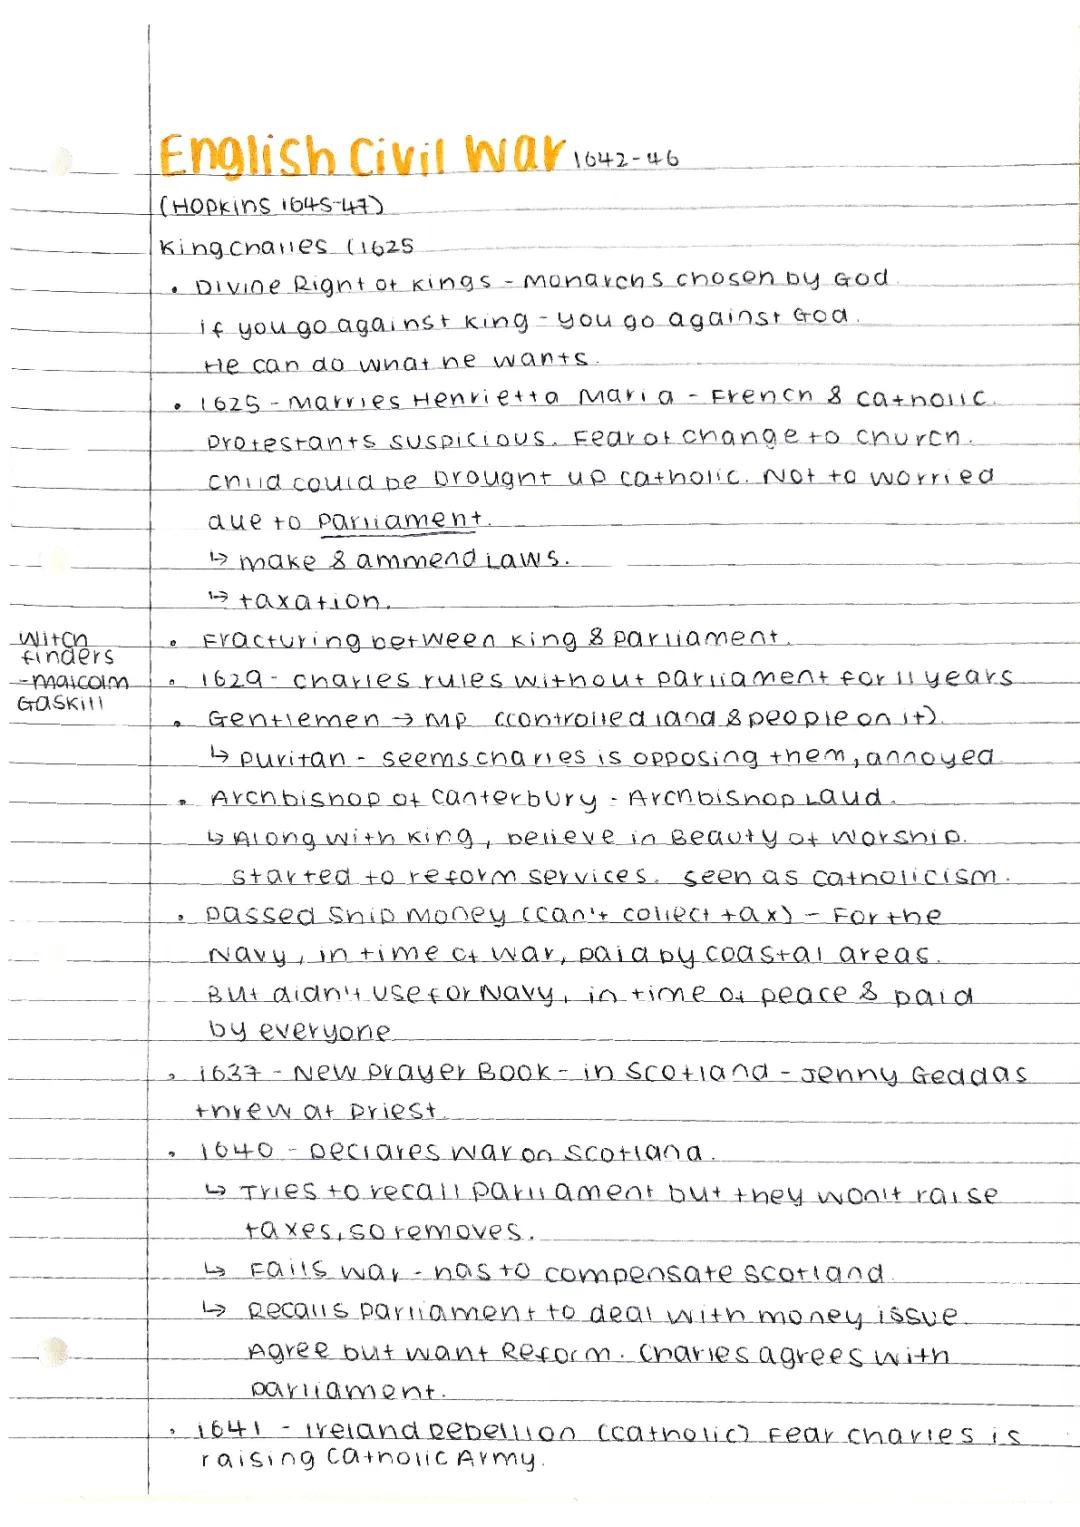 English Civil War 1642-46
(Hopkins 1645-47)
King Charles (1625
• Divine Right of Kings - Monarchs chosen by God.
if you go against King - you go against God.
He can do what he wants.
• 1625 - Marries Henrietta Maria - French & catholic.
Protestants suspicious. Fear of change to church.
child could be brought up catholic. Not to worried
due to parliament.
↳ make & ammend Laws.
↳ taxation.
• Fracturing between King & parliament.
Witch
finders
- Malcolm
Gaskill
• 1629 - charles rules without parliament for 11 years
• Gentlemen → MP (controlled land & people on it).
↳ puritan - seems charles is opposing them, annoyed.
• Archbishop of Canterbury - Archbishop Laud.
↳ Along with King, believe in Beauty of Worship.
started to reform services. seen as catholicism.
• passed Ship Money (can't collect tax) - For the
Navy, in time of war, paid by coastal areas.
But didn't use for Navy, in time of peace & paid
by everyone
• 1637 - New Prayer Book - in Scotland - Jenny Geddas
threw at priest.
• 1640 - Declares war on Scotland.
↳ Tries to recall parliament but they won't raise
taxes, so removes.
↳ Fails war - has to compensate Scotland.
↳ Recalls parliament to deal with money issue.
Agree but want Reform. Charles agrees with
parliament.
• 1641 - Ireland Rebellion (catholic) Fear charles is
raising Catholic Army.